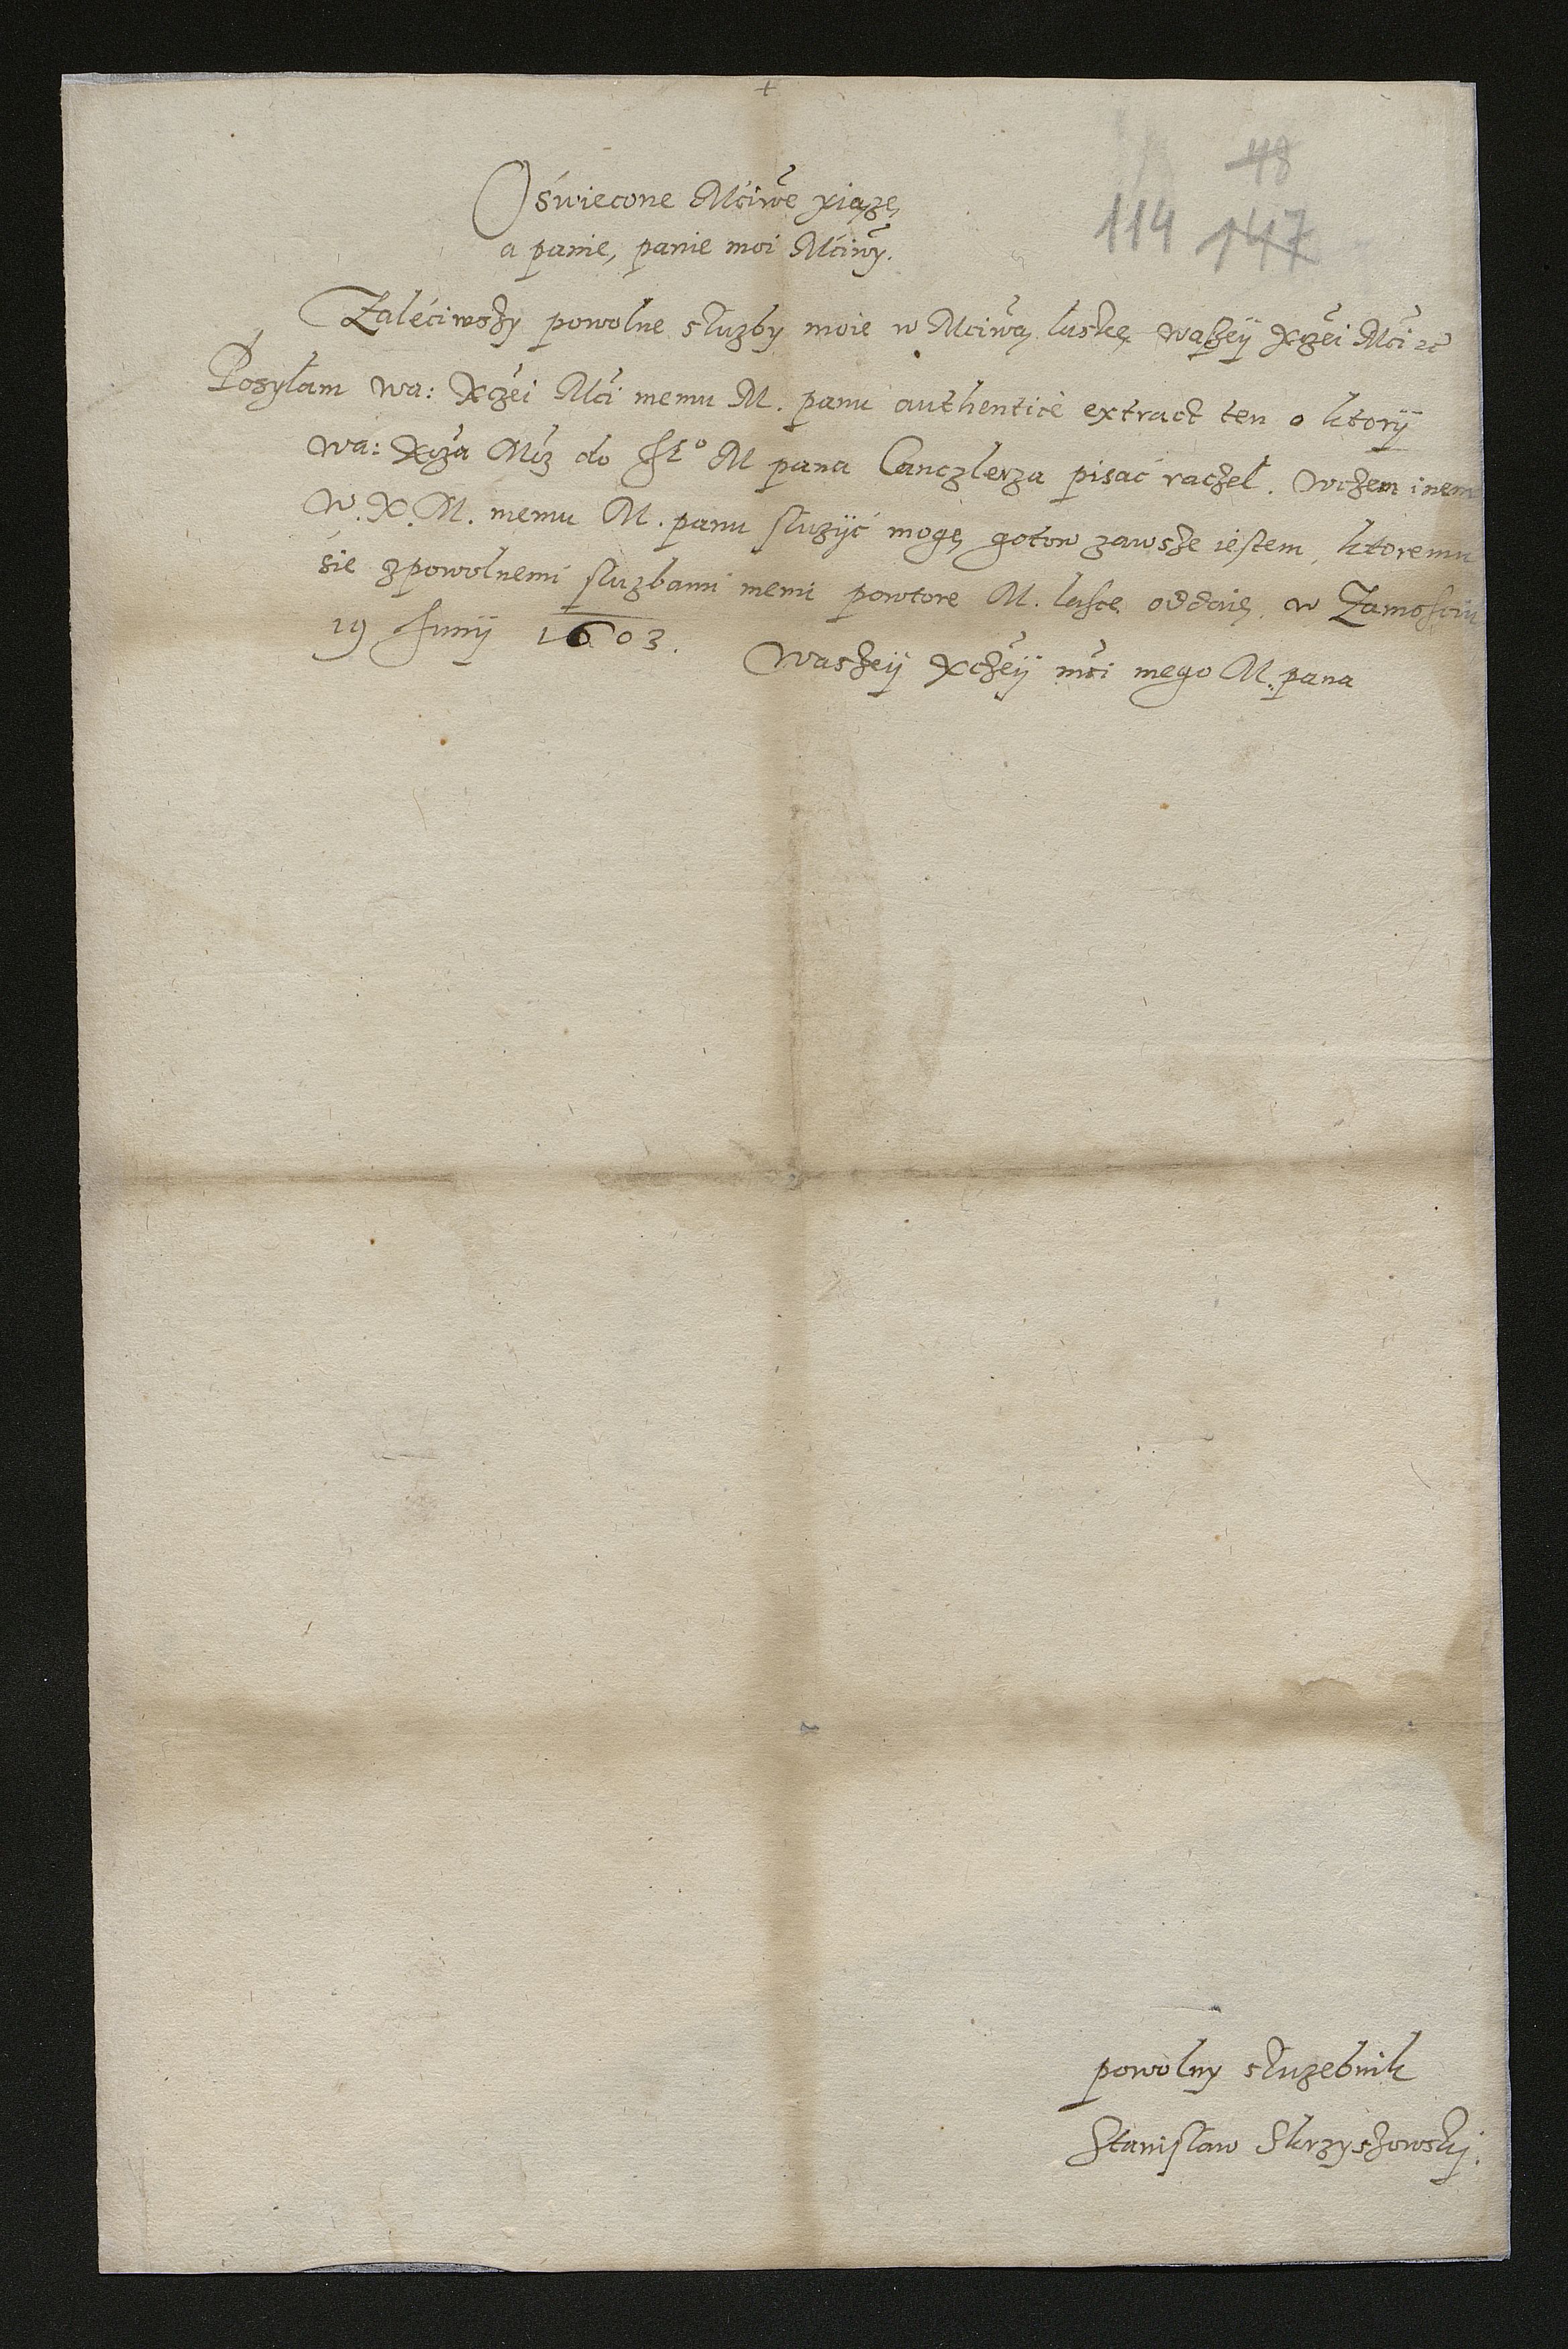 +
48
114 147
Oświecone Mciwe xiąże,
a panie, panie moi Mciwy.
Zaléciwszy powolne służby moie w Mciwą laskę waszeÿ Xżei Mći zć
Posyłam wa: Xczei Mći memu M. panu authenticè extract ten o ktorÿ
wa: Xcza Mcz do M pana Canczlerza pisać raczeł. wczem inem
W. X. M. memu M. panu służÿć mogę gotow zawsze iestem, ktoremu
sie zpowolnemi służbami memi powtore M. lasce oddaię. w Zamosciu
19 Junÿ 1603.
Waszeÿ Xczeÿ mći mego M. pana
powolny służebnik
Stanisław Skrzyszowskj.